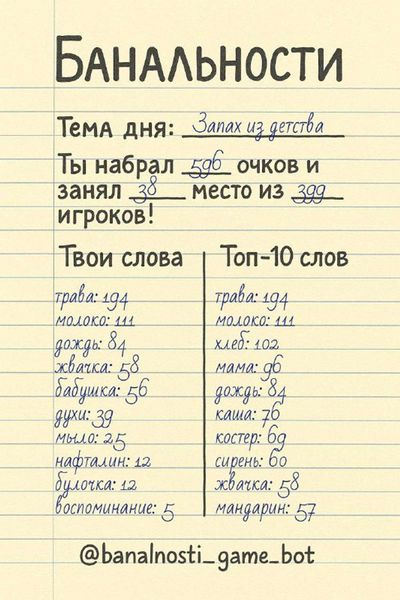 Банальности
Тема дня: Запах из детства
Ты набрал 596 очков и
занял 38 место из 399
игроков!
Твои слова
трава: 194
молоко: 111
дождь: 84
жвачка: 58
бабушка: 56
духи: 39
мыло: 25
нафталин: 12
булочка: 12
воспоминание: 5
Топ-10 слов
трава: 194
молоко: 111
хлеб: 102
мама: 96
дождь: 84
каша: 76
костер: 69
сирень: 60
жвачка: 58
мандарин: 57
@banalnosti_game_bot